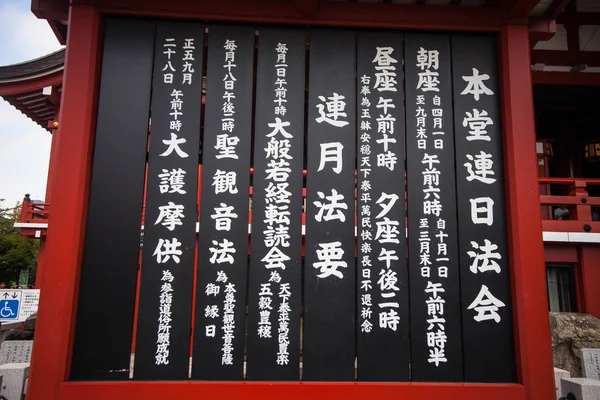 本堂連日法会
朝座 自四月一日 至九月末日 午前六時 自十月一日 至三月末日 午前六時半
昼座 午前十時 夕座 午後二時
右奉為玉躰安穏天下泰平萬民快楽長日不退祈念
連月法要
毎月一日午前十時 大般若経転読会 為 天下泰平萬民豊楽 五穀豊穣
毎月十八日午後二時 聖観音法 為 本尊聖観世音菩薩 御縁日
正五九月 二十八日 午前十時 大護摩供 為参詣道俗所願成就